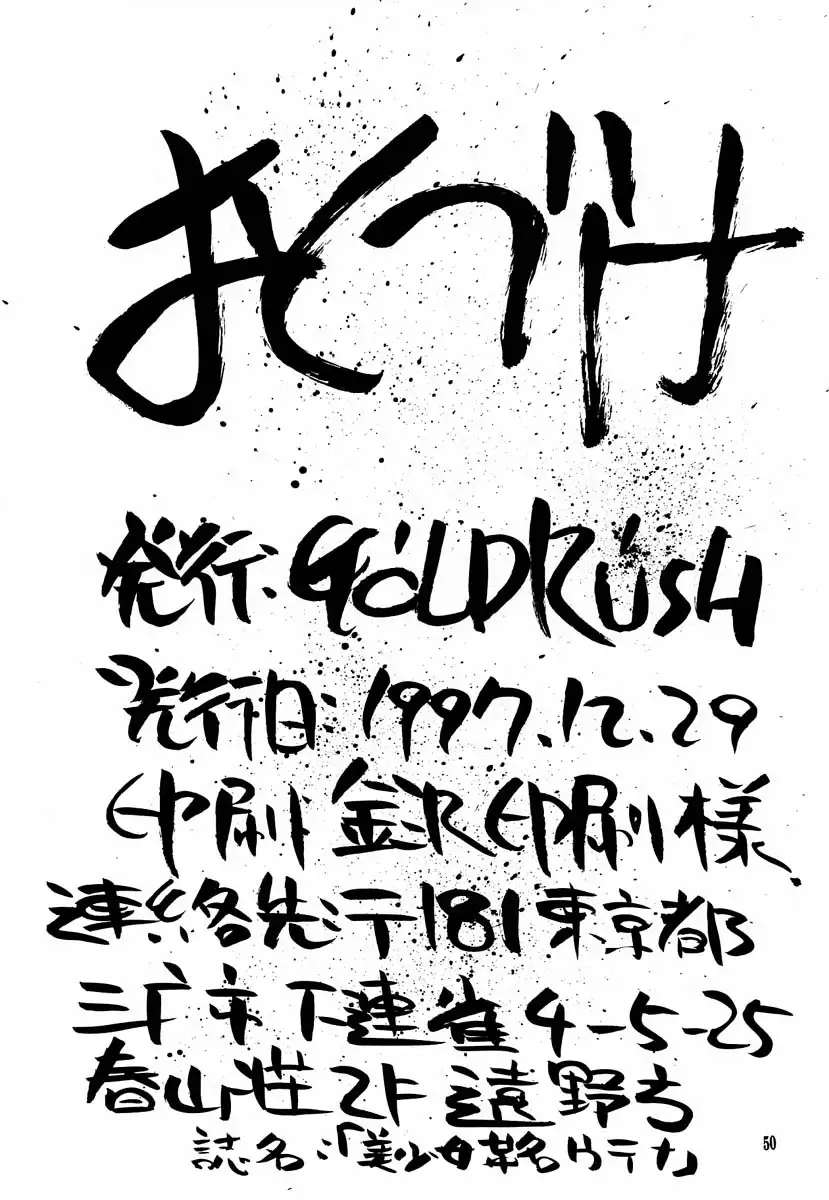 おくづけ
発行:GOLDRUSH
発行日:1997.12.29
印刷 金沢印刷様
連絡先:〒181東京都
三广市下連雀4-5-25
春山荘2F遠野方
誌名:「美少女革名ウテナ」
50